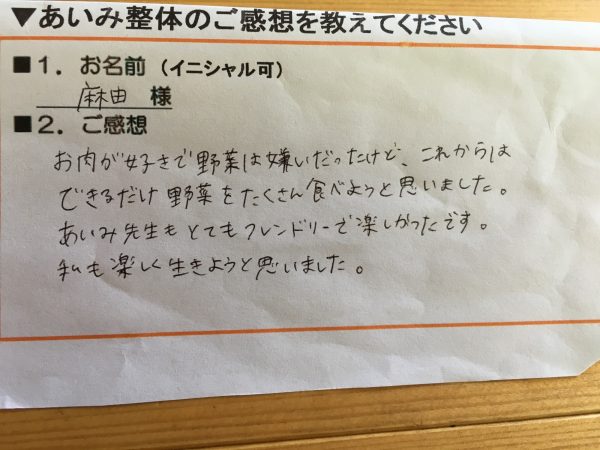 ▼あいみ整体のご感想を教えてください
■1．お名前（イニシャル可）
麻由 様
■2．ご感想
お肉が好きで野菜は嫌いだったけど、これからは
できるだけ野菜をたくさん食べようと思いました。
あいみ先生もとてもフレンドリーで楽しかったです。
私も楽しく生きようと思いました。